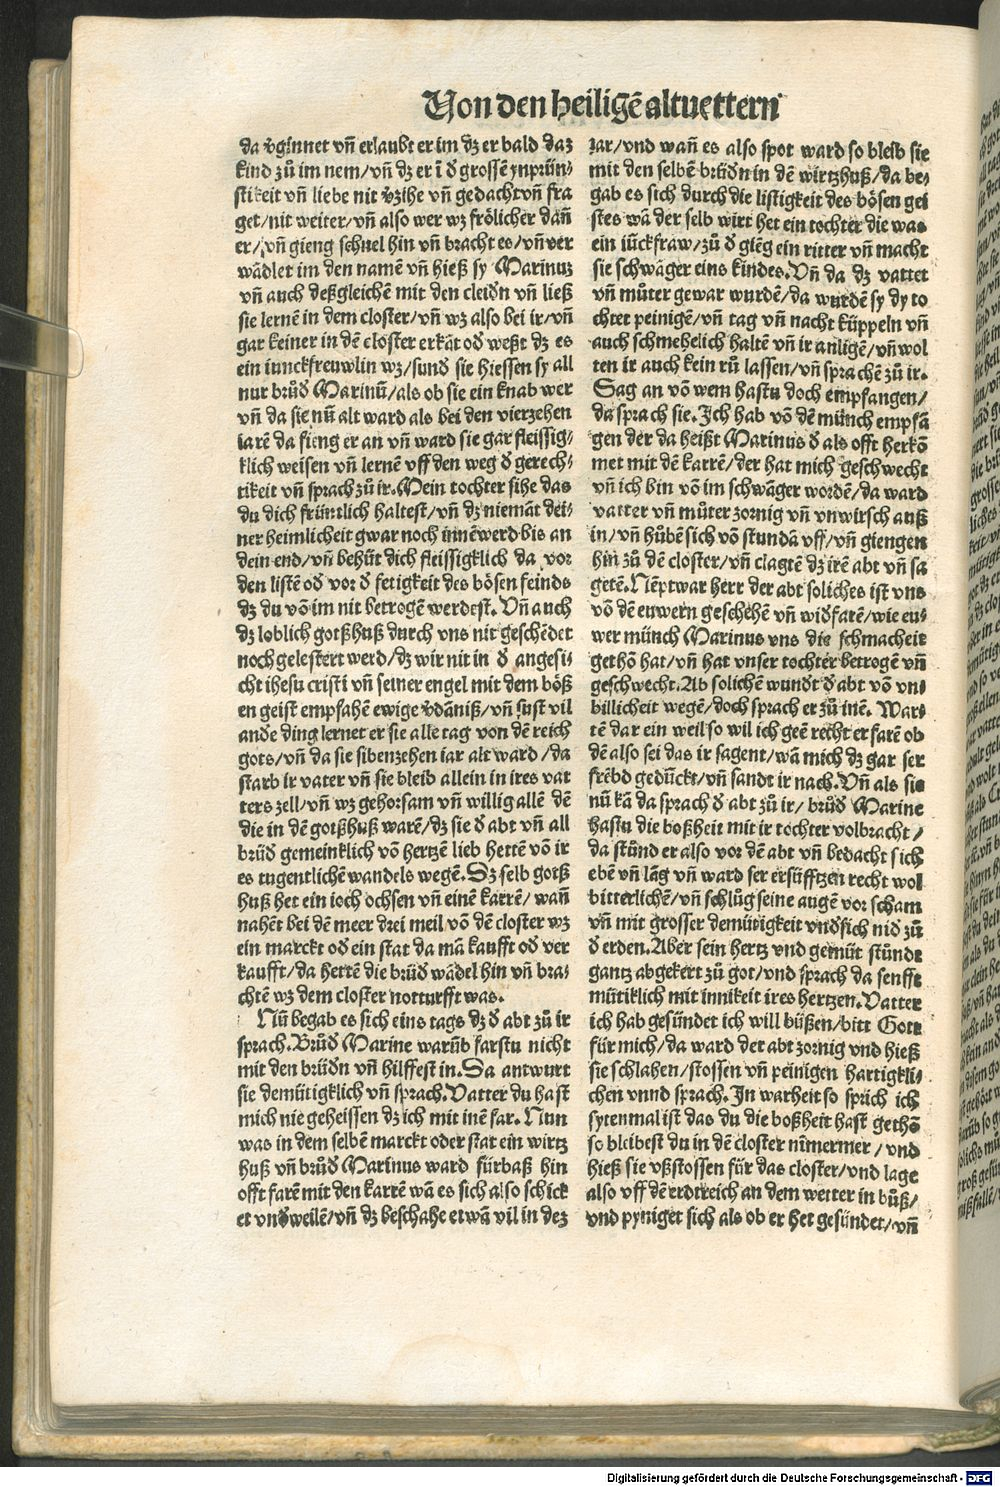 Von den heiligē altuettern
da vginnet vñ erlaubt er im dz er bald daz
kind zů im nem/vñ dz er ī d grossē ynprün⸗
stikeit vñ liebe nit vzihe vñ gedacht vñ fra
get/nit weiter/vñ also wer wz frölicher dañ
er/vñ gieng schnel hin vñ bracht es/vñ ver
wādlet im den namē vñ hieß sy Marinuz
vñ auch deßgleichē mit den cleidn vñ ließ
sie lernē in dem closter/vñ wz also bei ir/vñ
gar keiner in dē closter erkāt od weßt dz es
ein iunckfreuwlin wz/sund sie hiessen sy all
nur brůd Marinū/als ob sie ein knab wer
vñ da sie nū alt ward als bei den vierzehen
iarē da fieng er an vñ ward sie gar fleissig⸗
klich weisen vñ lernē vff den weg d gerech⸗
tikeit vñ sprach zů ir. Mein tochter sihe das
du dich früntlich haltest/vñ dz niemāt dei⸗
ner heimlicheit gwar noch innē werd bis an
dein end/vñ behüt dich fleissigklich da vor
den listē od vor d fetigkeit des bösen feinds
dz du vō im nit betrogē werdest. Vñ auch
dz loblich gotßhuß durch vns nit geschēdet
noch gelestert werd/dz wir nit in d angesi⸗
cht ihesu cristi vñ seiner engel mit dem böß
en geist empfahē ewige vdāniß/vñ sust vil
ande ding lernet er sie alle tag von dē reich
gots/vñ da sie sibenzehen iar alt ward/da
starb ir vater vñ sie bleib allein in ires vat
ters zell/vñ wz gehorsam vñ willig allē dē
die in dē gotßhuß warē/dz sie d abt vñ all
brüd gemeinklich vō hertzē lieb hettē vō ir
es tugentlichē wandels wegē. Dz selb gotß
huß het ein ioch ochsen vñ einē karrē/wañ
nahēt bei dē meer drei meil vō dē closter wz
ein marckt od ein stat da mā kaufft od ver
kaufft/da hettē die brüd wādel hin vñ bra⸗
chtē wz dem closter notturfft was.
Nū begab es sich eins tags dz d abt zů ir
sprach. Brůd Marine warūb farstu nicht
mit den brüdn vñ hilffest in. Da antwurt
sie demütigklich vñ sprach. Vatter du hast
mich nie geheissen dz ich mit inē far. Nun
was in dem selbē marckt oder stat ein wirtz
huß vñ brůd Marinus ward fürbaß hin
offt farē mit den karrē wā es sich also schick
et vndweilē/vñ dz beschahe etwā vil in dez
iar/vnd wañ es also spot ward so bleib sie
mit den selbē brüdn in dē wirtzhuß/da be⸗
gab es sich durch die listigkeit des bösen gei
stes wā der selb wirt het ein tochter die was
ein iückfraw/zů d giēg ein ritter vñ macht
sie schwāger eins kindes. Vñ da dz vattet
vñ můter gewar wurdē/da wurdē sy dy to
chter peinigē/vñ tag vñ nacht küppeln vñ
auch schmehelich haltē vñ ir anligē/vñ wol
ten ir auch kein rů lassen/vñ sprachē zů ir.
Sag an vō wem hastu doch empfangen/
da sprach sie. Ich hab vō dē münch empfā
gen der da heißt Marinus d als offt herkō
met mit dē karrē/der hat mich geschwecht
vñ ich bin vō im schwāger wordē/da ward
vatter vñ můter zornig vñ vnwirsch auß
in/vñ hůbē sich vō stundā vff/vñ giengen
hin zů dē closter/vñ clagtē dz irē abt vñ sa
getē. Nēptwar herr der abt soliches ist vns
vō dē euwern geschehē vñ widfarē/wie eu⸗
wer münch Marinus vns die schmacheit
gethō hat/vñ hat vnser tochter betrogē vñ
geschwecht. Ab solichē wundt d abt vō vn⸗
billicheit wegē/doch sprach er zů inē. War⸗
tē dar ein weil so wil ich geē recht erfarē ob
dē also sei das ir sagent/wā mich dz gar ser
frēbd gedückt/vñ sandt ir nach. Vñ als sie
nū kā da sprach d abt zů ir/brůd Marine
hastu die boßheit mit ir tochter volbracht/
da stůnd er also vor dē abt vñ bedacht sich
ebē vñ lāg vñ ward ser ersüfftzen recht wol
bitterlichē/vñ schlůg seine augē vor scham
vñ mit grosser demütigkeit vndsich nid zů
d erden. Aber sein hertz vnd gemüt stůnde
gantz abgekert zů got/vnd sprach da senfft
mütiklich mit innikeit ires hertzen. Vatter
ich hab gesündet ich will büßen/bitt Gott
für mich/da ward der abt zornig vnd hieß
sie schlahen/stossen vñ peinigen hartigkli⸗
chen vnnd sprach. In warheit so sprich ich
sytenmal ist das du die boßheit hast gethō
so bleibest du in dē closter nīmermer/vnd
hieß sie vßstossen für das closter/vnd lage
also vff dē erdtreich an dem wetter in bůß/
vnd pyniget sich als ob er het gesündet/vñ
Digitalisierung gefördert durch die Deutsche Forschungsgemeinschaft - DFG